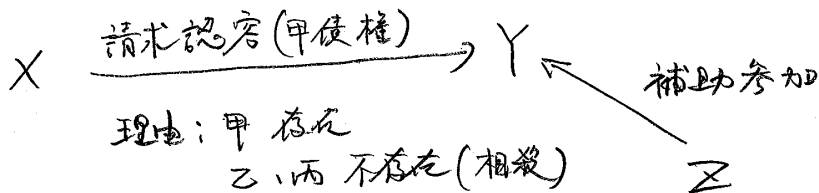 請求認容(甲債権)
X
Y
補助参加
理由:甲 存在
乙、丙 不存在(相殺)
Z